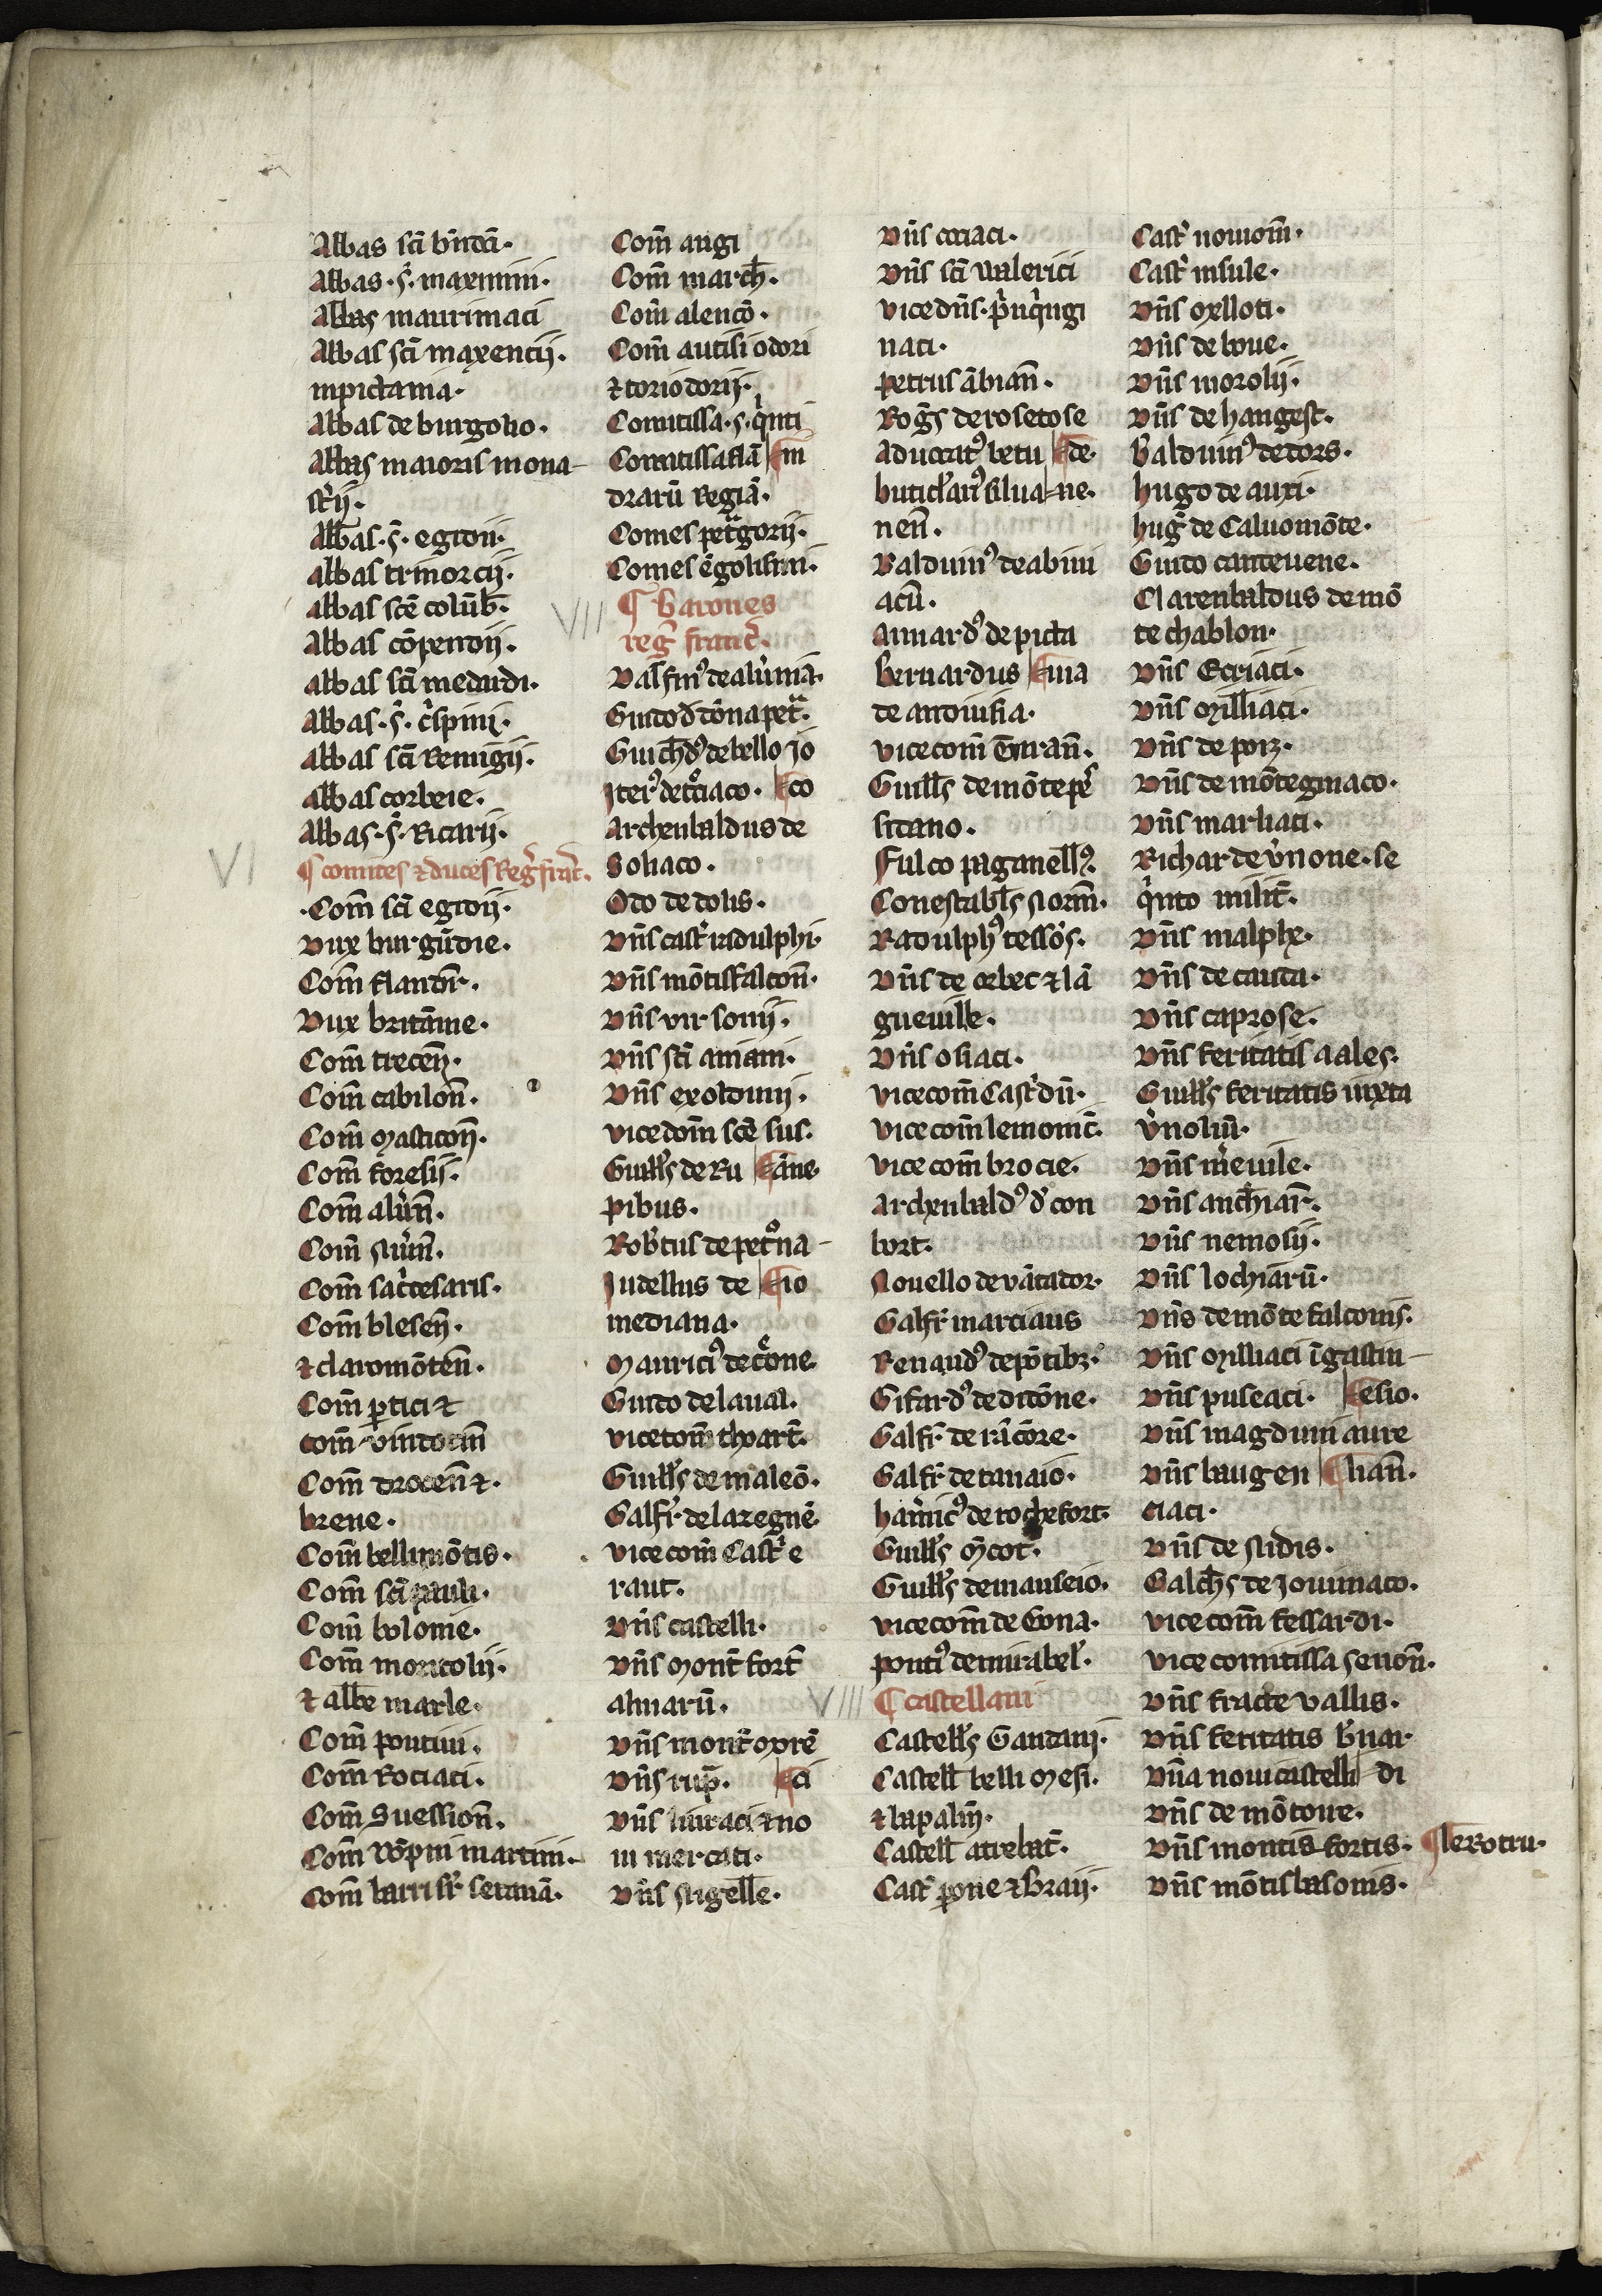 Abbas scī bn̄dcī.
Abbas .s̄. maximini.
Abbas maurimaci
Abbas scī maxencij.
inpictania.
Abbas de burgolio.
Abbas maioris mona-
st'ij.
Abbas .s̄. egidii.
Abbas trinorcij.
Abbas scē colūb̄.
Abbas cōpendij.
Abbas scī medardi.
Abbas .s̄. c̓spini.
Abbas scī Remigij.
Abbas corbeie.
Abbas .s̄. Ricarij.
VI
¶ comites ⁊ duces Reg̓ franc̓.
.Com̄ scī egidij.
Dux burgūdie.
Com̄ flandr̄.
Dux britānie.
Com̄ trecen̄.
Com̄ cabilon̄.
Com̄ Masticon̄.
Com̄ foresij.
Com̄ alu̓n̄.
Com̄ Niu̓n̄.
Com̄ sac̓cesaris.
Com̄ blesen̄.
⁊ claromōten̄.
Com̄ ꝑtici ⁊
com̄ vindocin̄
Com̄ drocen̄ ⁊.
brene.
Com̄ bellimōtis.
Com̄ scī pauli.
Com̄ bolonie.
Com̄ moritolij.
⁊ albe marle.
Com̄ pontiui.
Com̄ Rociaci.
Com̄ Suession̄.
Com̄ martini.
Com̄ barri
Com̄ augi
Com̄ march̄.
Com̄ alencō.
Com̄ autisiodori
⁊ toriodorij.
Comitissa .s. q̓nti
Comitissa flā ¶ ni
drarū Regiā.
Comes pet̓gorij.
Comes ēgolismi.
VII
¶ Barones
reg̓ franc̓.
Guido
Guich̄dꝰ de bello Jo
Iterꝰ ¶ co
Archenbaldus de
Soliaco.
Odo de dolis.
Dn̄s cast̓ radulphi.
Dn̄s mōtisfalcon̄.
Dn̄s virsonij.
Dn̄s scī aniani.
Dn̄s exoldunij.
vicedom̄ scē sus.
Guill̄s de Ru ¶ āne.
pibus.
Rob̓tus de
Iudellus de ¶ io
mediana.
Mauriciꝰ de c̓one.
Guido de laual.
vicecom̄ thoarē.
Guill̄s de maleō.
Galfr̓. de lazegnē.
vicecom̄ Cast̓ e
raut.
Dn̄s castelli.
Dn̄s Mont̄ fort̄
alinarū.
Dn̄s
Dn̄s rup̄. ¶ ci
Dn̄s liuraci ⁊ no
ui mercati.
Dn̄s Nigelle.
Dn̄s cociaci.
Dn̄s scī Walerici
vicedn̄s. p̓nq̓ugi
naci.
petrus ābian̄.
Rog̓s de roseto se
Aduocatꝰ betu ¶ de.
buticl̓arꝰ silua=ne.
nen̄.
Balduinꝰ de abini
acū.
Aimardꝰ de picta
bernardus ¶ uia
de andiusia.
vicecom̄
Guill̄s de mōte pe̓
sulano.
Fulco paganellꝰ.
Conestabl̄s Norm̄.
Radulphꝰ tesso̓s.
Dn̄s de orbec ⁊ lā
gueuille.
Dn̄s osiaci.
vicecom̄ Cast̓ dū.
vicecom̄ lemouic̄.
vicecom̄ brocie.
Archenbaldꝰ d̓ con
bort.
Nouello de vātador.
Galfr̓ marciaus
Renaudꝰ de pōtibꝫ.
Gifardꝰ de didōne.
Galfr̓. de rācōre.
Galfr̓. de tanaio.
ham̄icꝰ de rochefort.
Guill̄s
Guill̄s de mauseio.
vicecom̄ de Eona.
pontiꝰ de mirabel̓.
VIII
¶ castellani
Castell̄s Gandani.
Castell̄ belli Mesi.
⁊ bapalm̄.
Castell̄ atrebat̄.
Cast̓ ꝑone ⁊ Braij.
Cast̓ nouiom̄.
Cast̓ insule.
Dn̄s oxlloti.
Dn̄s de boue.
Dn̄s morolij.
Dn̄s de hangest.
Balduinꝰ de dors.
hugo de auxi.
hug̓ de Caluomōte.
Guido canteuene.
Clarenbaldus de mō
te chablon.
Dn̄s Ecriaci.
Dn̄s Milliaci.
Dn̄s de porꝫ.
Dn̄s de mōteginaco.
Dn̄s marliaci.
Richar de v̓none. se
q̓nto milit̄.
Dn̄s malphe.
Dn̄s de cauda.
Dn̄s caprose.
Dn̄s feritatis aales.
Guill̄s feritatis iuxta
v̓noliū.
Dn̄s m̓euile.
Dn̄s
Dn̄s nemosij.
Dn̄s lochiarū.
Dn̄s de mōte falconis.
Dn̄s Milliaci ī gastin-
Dn̄s puseaci. ¶ esio.
Dn̄s magduni aure
Dn̄s baugen ¶ lian̄.
ciaci.
Dn̄s de Nidis.
Galch̄s de Jouinaco.
vicecom̄ fessardi.
vicecomitissa senon̄.
Dn̄s fracte vallis.
Dn̄s feritatis b̓nar
Dn̄a noui castelli di
Dn̄s de mōtoue.
Dn̄s montis fortis. ¶ le Rotru.
Dn̄s mōtis basonis.